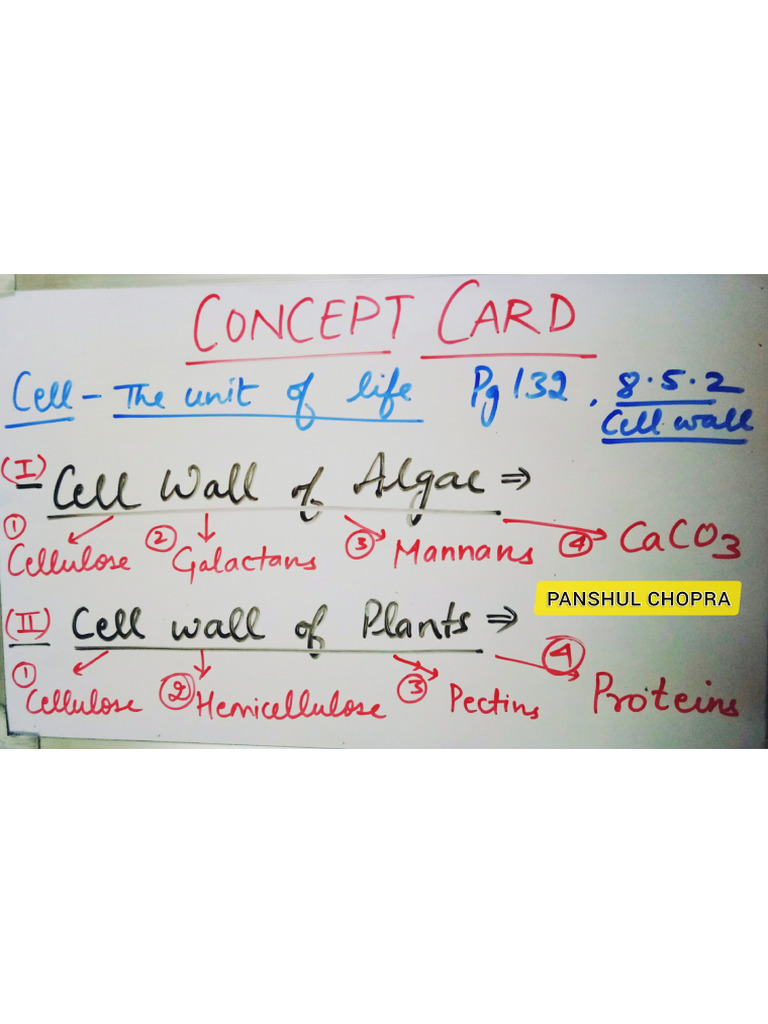 CONCEPT CARD
Cell - The unit of life Pg 132, 8.5.2
Cell wall
(I) Cell Wall of Algae ⇒
① Cellulose ② Galactans ③ Mannans ④ CaCO3
PANSHUL CHOPRA
(II) Cell wall of Plants ⇒
① Cellulose ② Hemicellulose ③ Pectins ④ Proteins